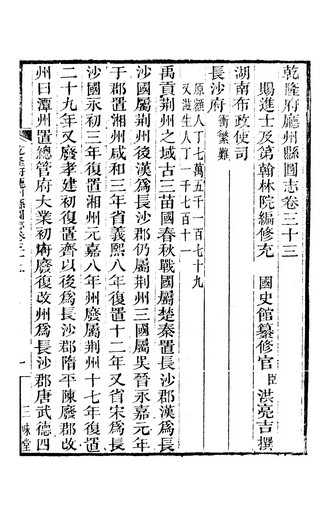 乾隆府廳州縣圖志卷三十三
賜進士及第翰林院編修充 國史館纂修官臣洪亮吉撰
湖南布政使司
長沙府衝繁難
原額人丁七萬五千一百七十九
又滋生人丁一千七百十一
禹貢荆州之域古三苗國春秋戰國屬楚秦置長沙郡漢爲長
沙國屬荆州後漢爲長沙郡仍屬荆州三國屬吳晉永嘉元年
于郡置湘州咸和三年省義熙八年復置十二年又省宋爲長
沙國永初三年復置湘州元嘉八年州廢屬荆州十七年復置
二十九年又廢孝建初復置齊以後爲長沙郡隋平陳廢郡改
州曰潭州置總管府大業初府廢復改州爲長沙郡唐武德四
乾隆府廳州縣圖志卷三十三
一
三味堂